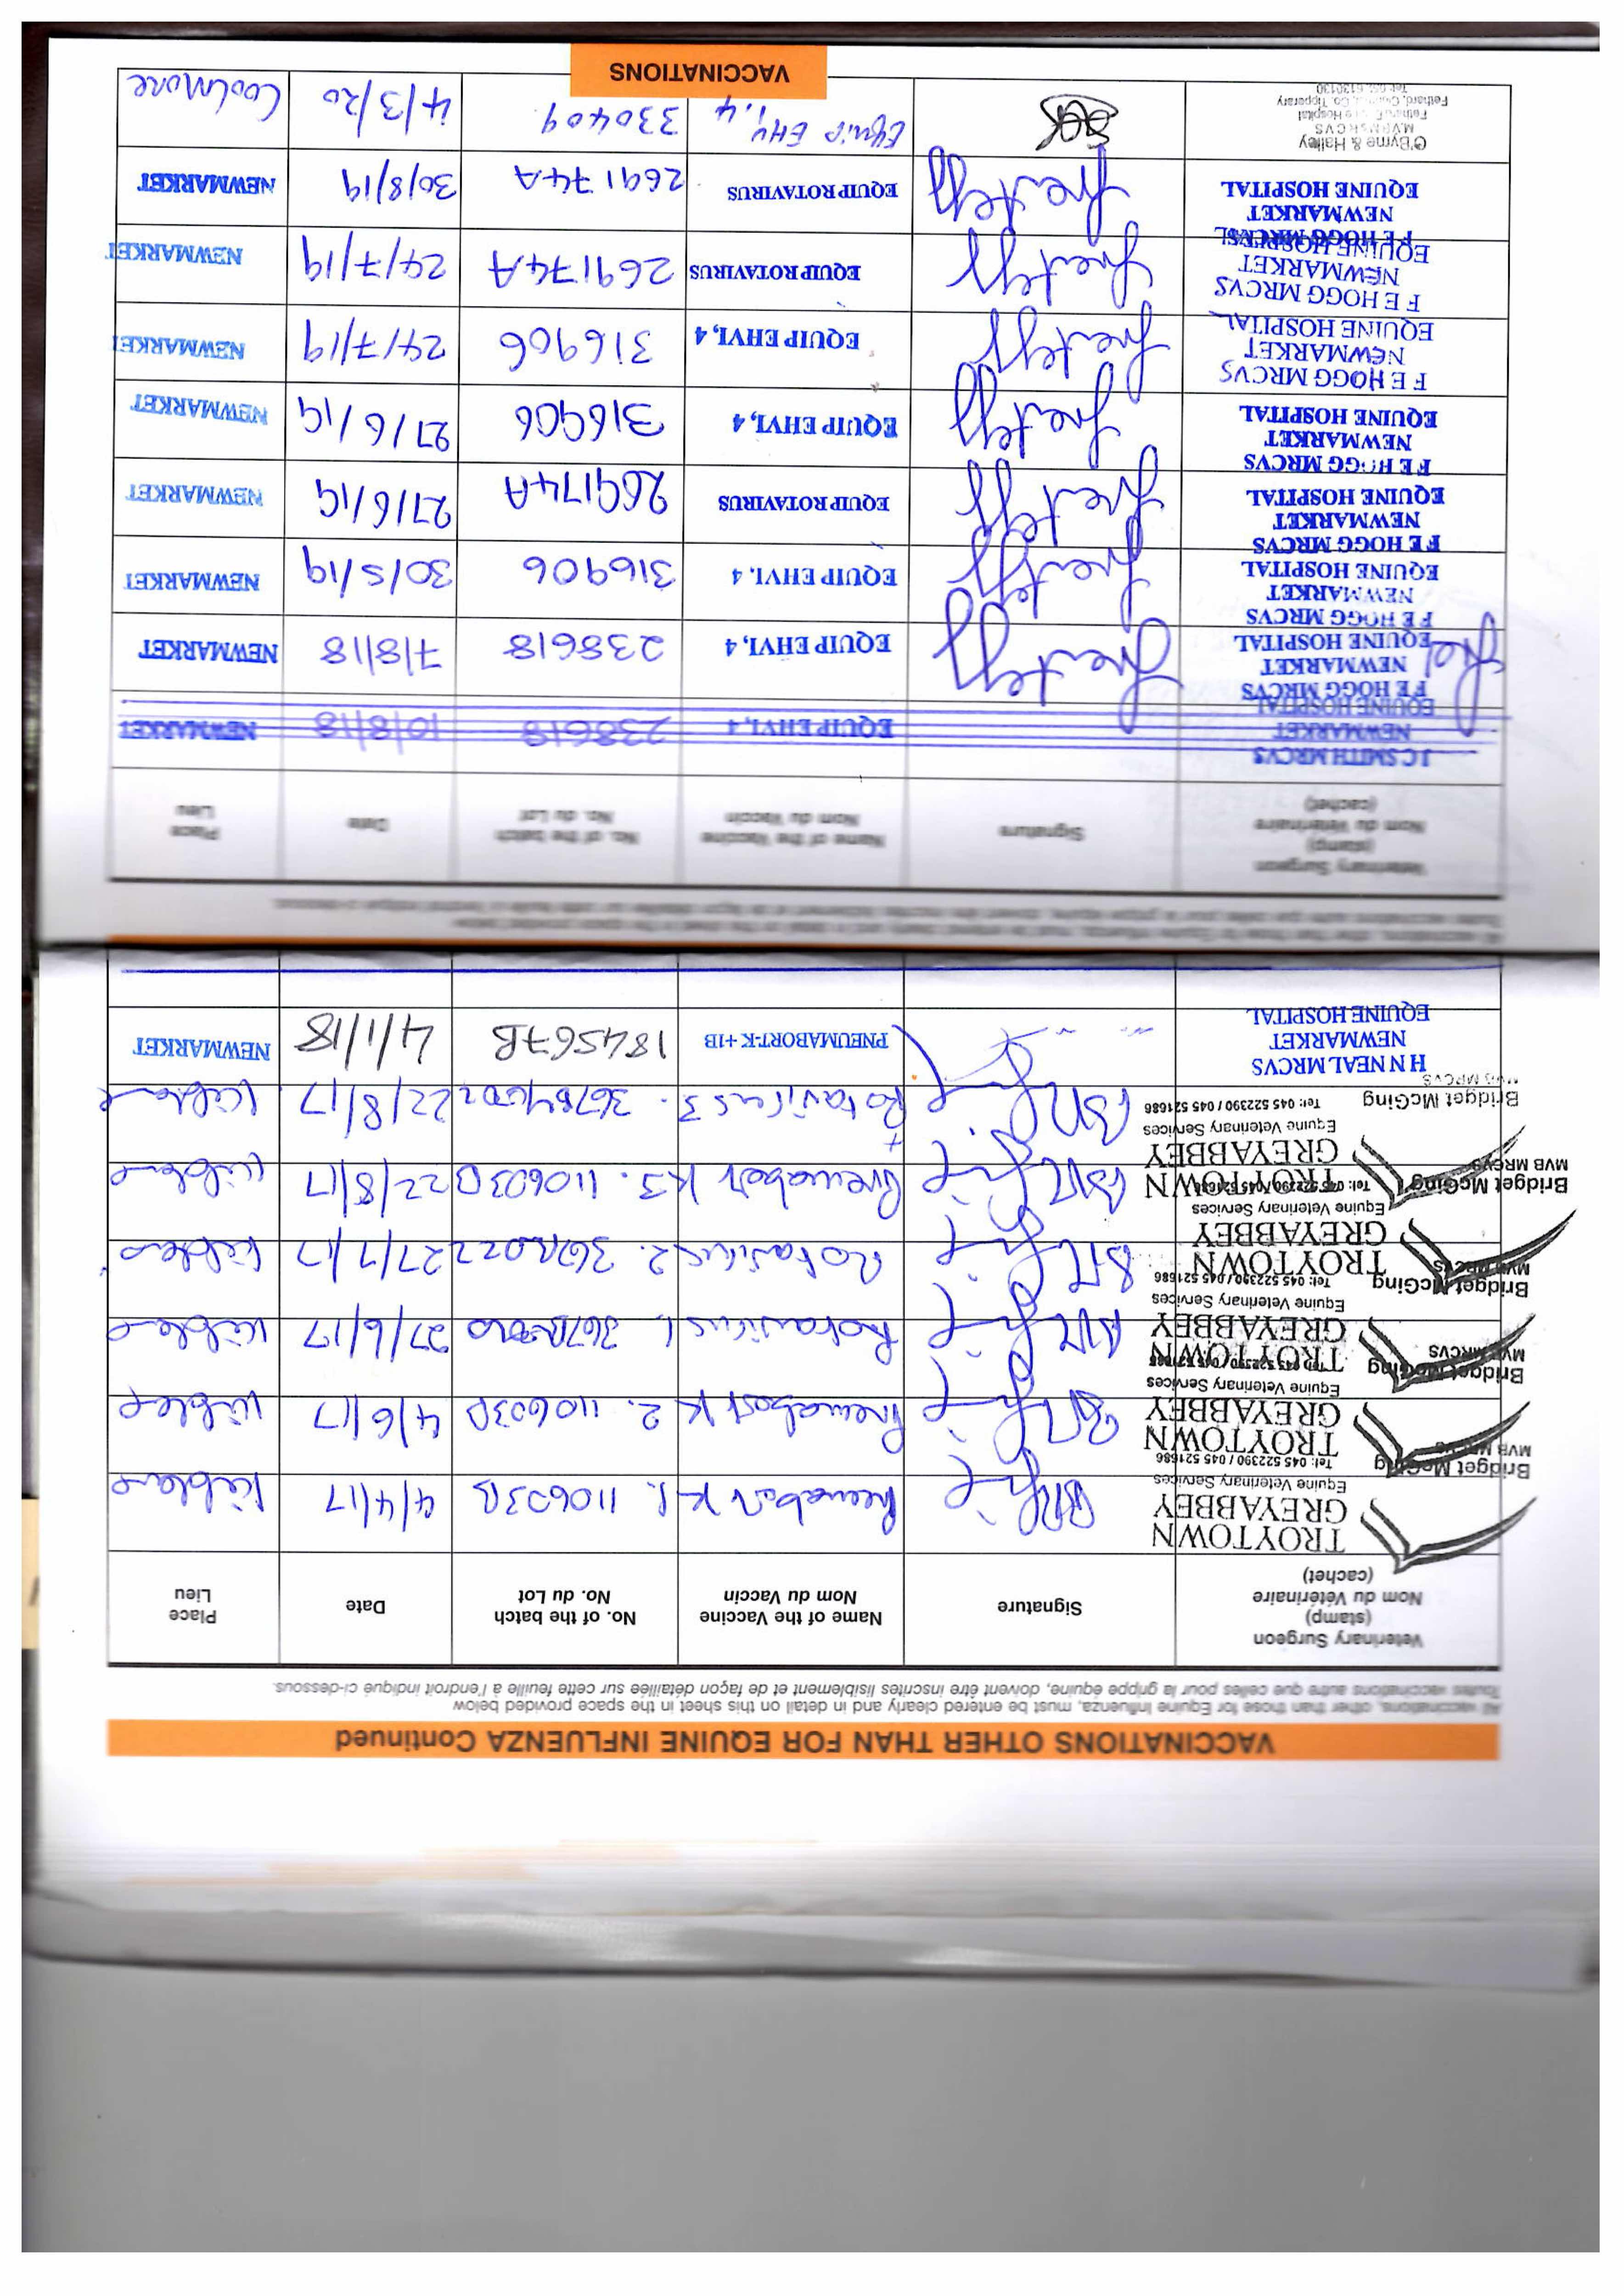 VACCINATIONS OTHER THAN FOR EQUINE INFLUENZA Continued
All vaccinations, other than those for Equine Influenza, must be entered clearly and in detail on this sheet in the space provided below
Toutes vaccinations autre que celles pour la grippe équine, doivent être inscrites lisiblement et de façon détaillée sur cette feuille à l'endroit indiqué ci-dessous.
Place Lieu | Date | No. of the batch No. du Lot | Name of the Vaccine Nom du Vaccin | Signature | Veterinary Surgeon (stamp) Nom du Vétérinaire (cachet)
Kildare 4/4/17 110603B Pneumabort K 1. TROYTOWN GREYABBEY Equine Veterinary Services Tel: 045 522390 / 045 521686 Bridget McGing MVB MRCVS
Kildare 4/6/17 110603B Pneumabort K 2. TROYTOWN GREYABBEY Equine Veterinary Services Bridget McGing MVB MRCVS
Kildare 27/6/17 Rotavirus 1. TROYTOWN GREYABBEY Equine Veterinary Services Tel: 045 522390 / 045 521686 Bridget McGing MVB MRCVS
Kildare 27/7/17 Rotavirus 2. TROYTOWN GREYABBEY Equine Veterinary Services Tel: 045 522390 / 045 521686 Bridget McGing MVB MRCVS
Kildare 22/8/17 110603B Pneumabort K3. + TROYTOWN GREYABBEY Equine Veterinary Services Tel: 045 522390 / 045 521686 Bridget McGing MVB MRCVS
Kildare 22/8/17 Rotavirus 3.
NEWMARKET 4/1/18 184567B PNEUMABORT-K+1B H N NEAL MRCVS NEWMARKET EQUINE HOSPITAL
All vaccinations, other than those for Equine Influenza, must be entered clearly and in detail on this sheet in the space provided below
Toutes vaccinations autre que celles pour la grippe équine, doivent être inscrites lisiblement et de façon détaillée sur cette feuille à l'endroit indiqué ci-dessous.
Place Lieu | Date | No. of the batch No. du Lot | Name of the Vaccine Nom du Vaccin | Signature | Veterinary Surgeon (stamp) Nom du Vétérinaire (cachet)
NEWMARKET 10/8/18 238618 EQUIP EHVI, 4 J C SMITH MRCVS NEWMARKET EQUINE HOSPITAL
NEWMARKET 7/8/18 238618 EQUIP EHVI, 4 F E HOGG MRCVS NEWMARKET EQUINE HOSPITAL
NEWMARKET 30/5/19 316906 EQUIP EHVI, 4 F E HOGG MRCVS NEWMARKET EQUINE HOSPITAL
NEWMARKET 27/6/19 269174A EQUIP ROTAVIRUS F E HOGG MRCVS NEWMARKET EQUINE HOSPITAL
NEWMARKET 27/6/19 316906 EQUIP EHVI, 4 F E HOGG MRCVS NEWMARKET EQUINE HOSPITAL
NEWMARKET 29/7/19 316906 EQUIP EHVI, 4 F E HOGG MRCVS NEWMARKET EQUINE HOSPITAL
NEWMARKET 29/7/19 269174A EQUIP ROTAVIRUS F E HOGG MRCVS NEWMARKET EQUINE HOSPITAL
NEWMARKET 30/8/19 269174A EQUIP ROTAVIRUS F E HOGG MRCVS NEWMARKET EQUINE HOSPITAL
Coolmore 4/3/20 330409 Equip EHV 1,4 O'Byrne & Halley Fethard, Co. Tipperary
VACCINATIONS